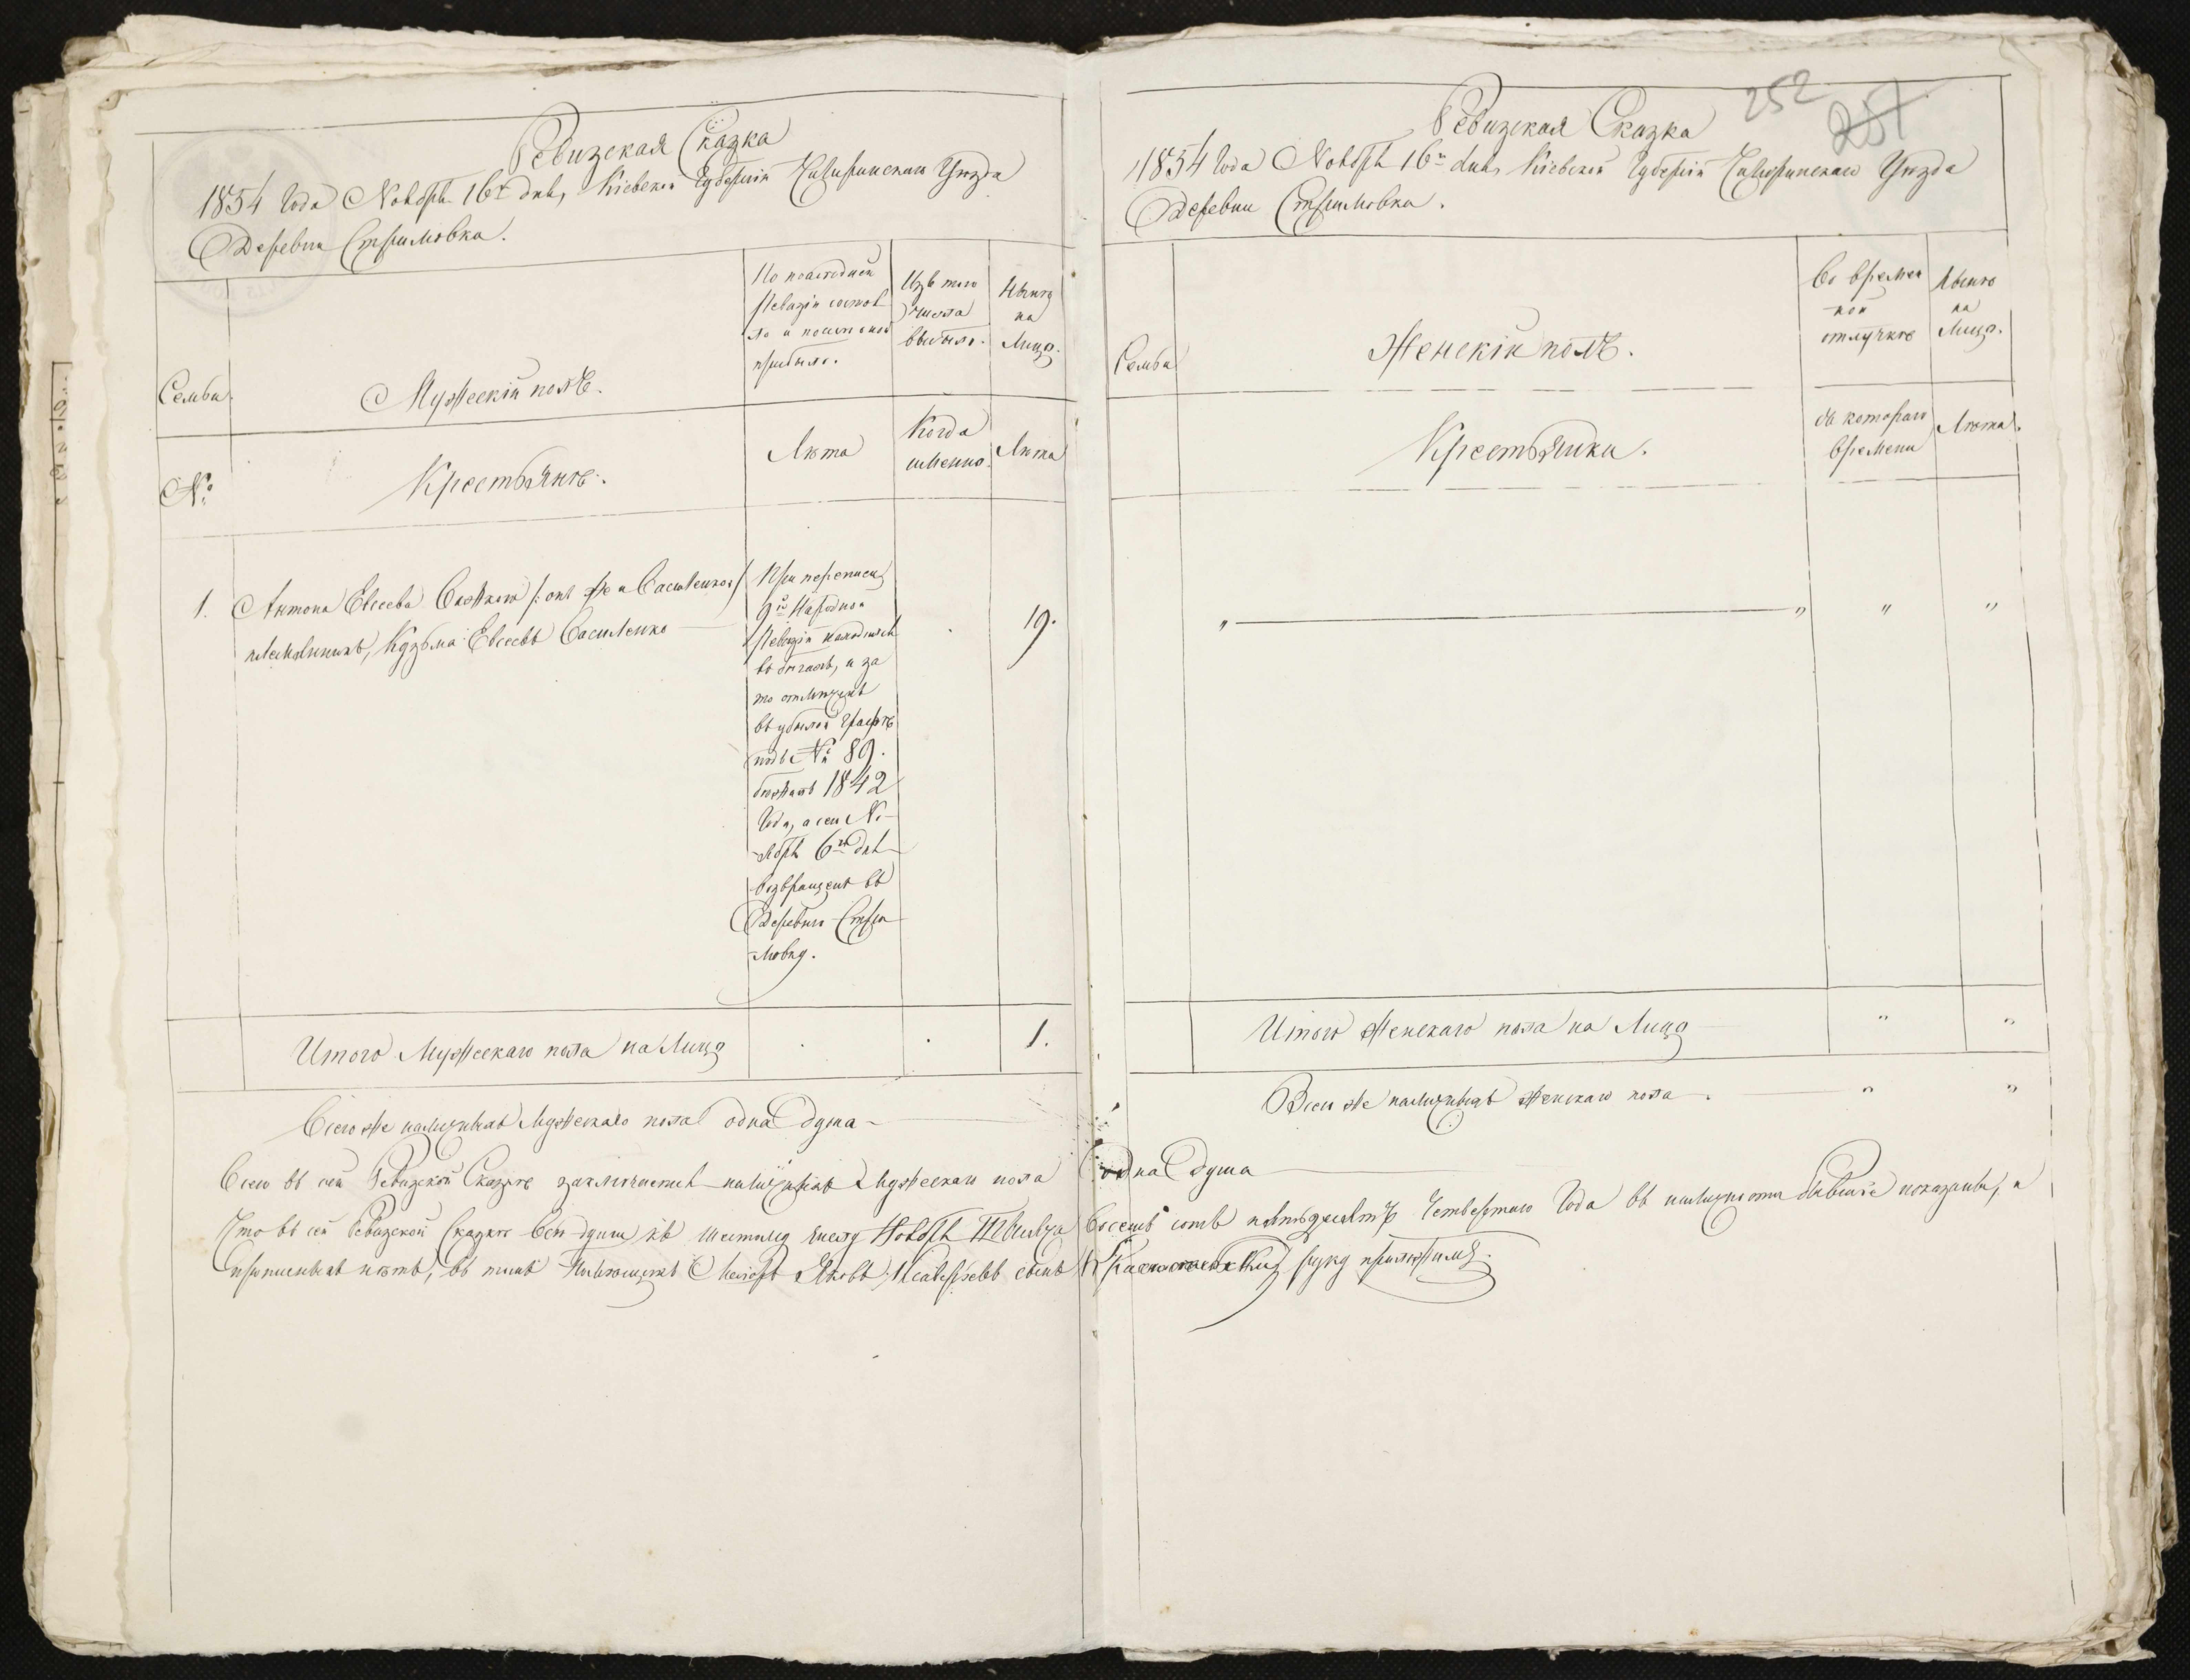 Ревизская Сказка
1854 Года Ноября 16го дня, Кіевской Губерніи Чигиринскаго Уѣзда
Деревни Стримовка.
Семьи
Мужескій полъ.
По последней
Ревизіи состоя
ло и после оной
прибыло.
Изъ того
числа
выбыло.
Нынѣ
на
Лицо.
№
Крестьяне.
Лѣта
Когда
именно.
Лѣта
1. Антона Евсеева Снѣжко /: онъ же и Василенко :/
племянникъ, Кузьма Евсеевъ Василенко
При переписи
9й Народной
Ревизіи находился
въ бегахъ, и за
то отмѣченъ
въ убылой графѣ
подъ № 89.
бежалъ 1842
Года, а сего Но-
ября 6го дня
возвращенъ въ
Деревню Стри
мовку.
19.
Итого Мужескаго пола на Лицо
1.
Всего же наличныхъ Мужескаго пола одна душа
Ревизская Сказка
252
257
1854 Года Ноября 16го дня, Кіевской Губерніи Чигиринскаго Уѣзда
Деревни Стримовка.
Семьи
Женскій полъ.
Во времен
ной
отлучкѣ
Нынѣ
на
Лицо.
Крестьянки.
съ котораго
времени
Лѣта.
" " " "
Итого Женскаго пола на Лицо " "
Всего же наличныхъ Женскаго пола. " "
Всего въ сей Ревизской Сказкѣ заключается наличныхъ Мужескаго пола одна душа
Что въ сей Ревизской Сказкѣ всѣ души къ шестому числу Ноября Тысяча восемь сотъ пятьдесятъ Четвертого Года въ наличности бывшіе показаны, и
прописныхъ нѣтъ, въ томъ Помѣщикъ Маіоръ Яковъ, сынъ Красносельскій руку приложилъ.